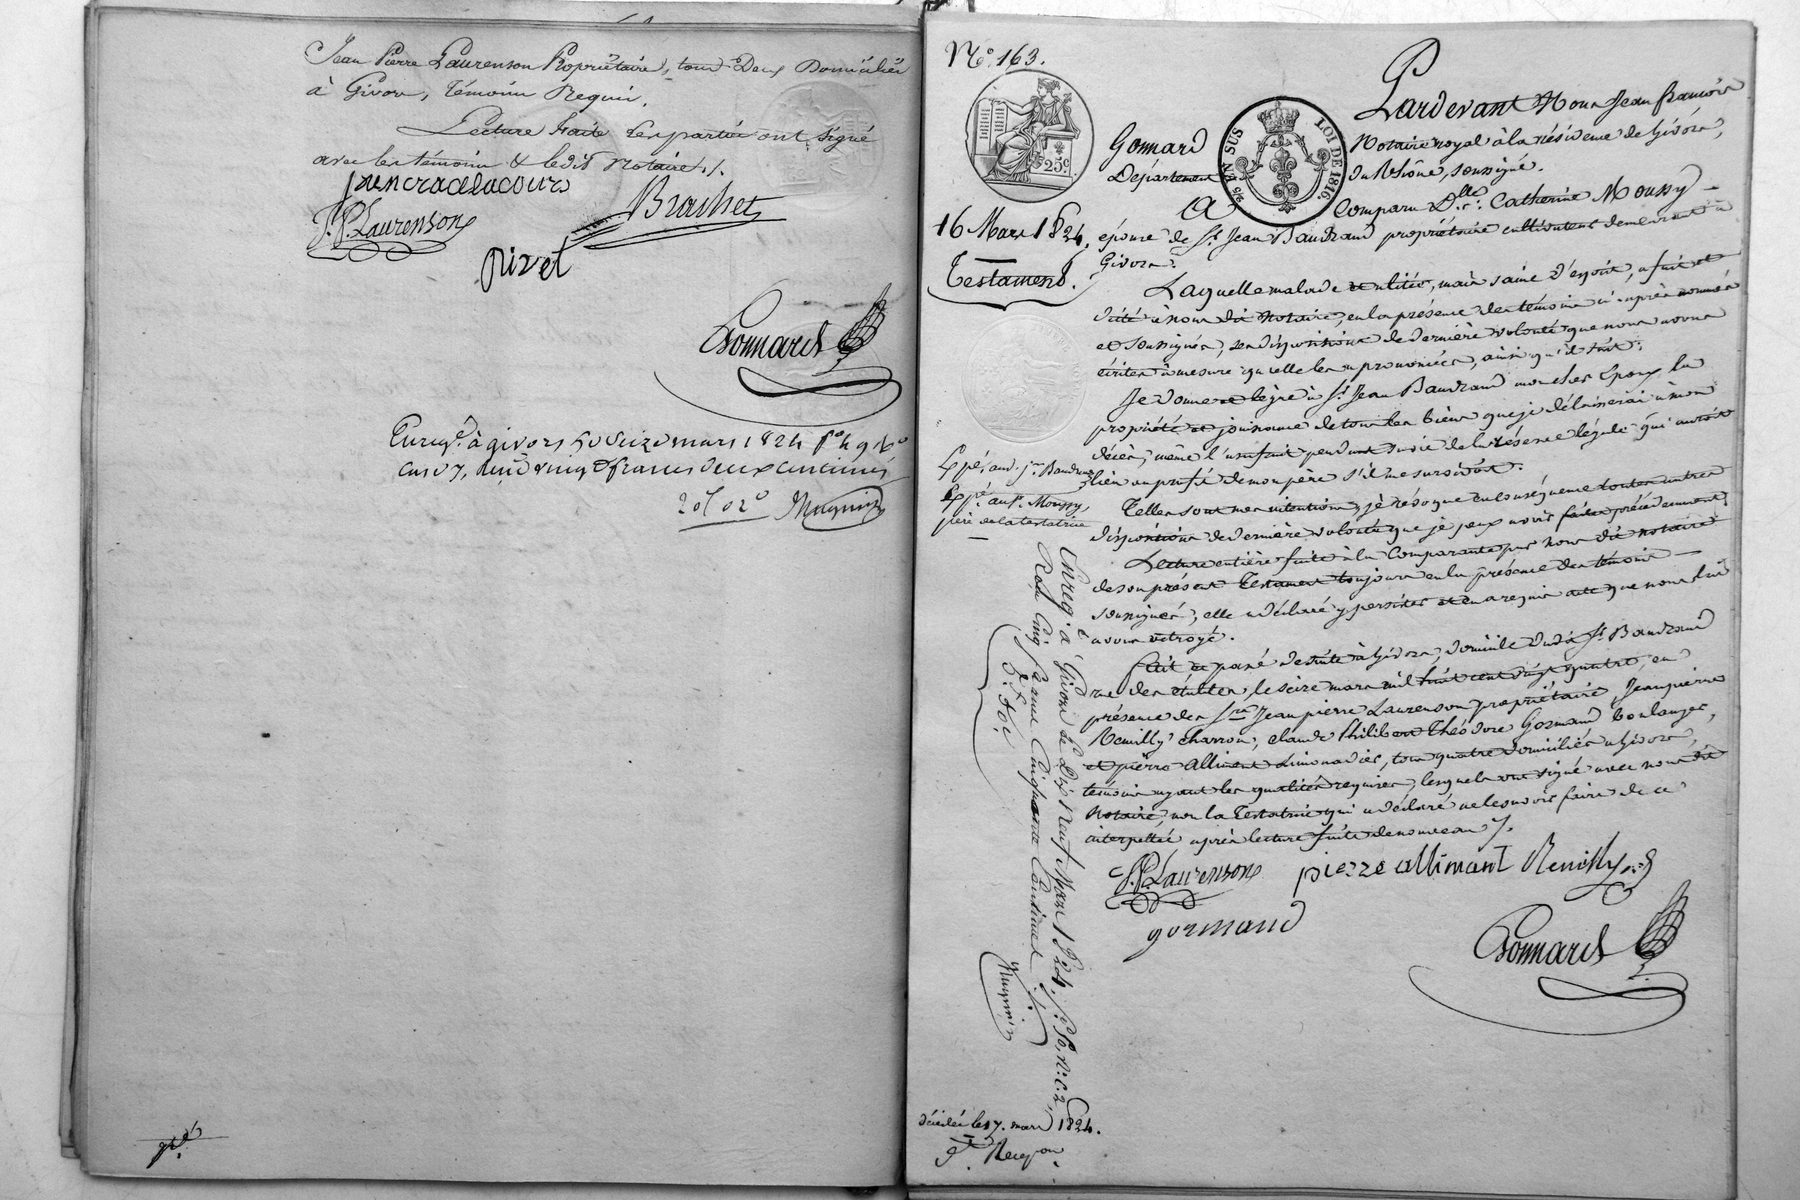 Jean Pierre Laurenson Propriétaire, tous Deux Domiciliés
à Givors, témoins Requis.
Lecture faite les parties ont signé
avec les témoins & ledit Notaire ./.
J.P. Laurenson
Brachet
pivet
Gonnard
Enreg.é à givors le seize mars 1824 f.o
cas 7, Reçu vingt francs deux centimes
20f 02c
N.o 163.
25c.
UN SUS
LOI DE 1816.
16 Mars 1824.
Testament.
Pardevant Nous Jean françois
Gonnard Notaire royal à la résidence de Givors,
Département du Rhône, soussigné.
A Comparu D.lle Catherine Moussy
épouse de S.r Jean Baudrand propriétaire cultivateur demeurant à
Givors.
Laquelle malade et alitée, mais saine d'esprit, a fait et
dicté à nous dit notaire, en la présence des témoins ci-après nommés
et soussignés, ses dispositions de dernière volonté que nous avons
écrites à mesure qu'elle les a prononcées, ainsi qu'il suit:
Je donne et lègue à S.r Jean Baudrand mon cher Epoux, la
propriété et jouissance de tous les biens que je délaisserai à mon
décès, même l'usufruit pendant sa vie de la réserve légale qui aurait
lieu au profit de mon père s'il me survivait.
Telles sont mes intentions, je révoque en conséquence toutes autres
dispositions de dernière volonté que je peux avoir faites précédemment,
Lecture entière faite à la Comparante par nous dit notaire
de son présent Testament toujours en la présence des témoins
soussignés, elle a déclaré y persister et en a requis acte que nous lui
avons octroyé.
Fait et passé de suite à Givors, domicile dudit S.r Baudrand
rue des étuites, le seize mars mil huit cent vingt quatre, en
présence des S.rs Jean pierre Laurenson propriétaire, Jean pierre
Remilly charron, claude Philibert Théodore Gormand boulanger,
et pierre Allimant Limonadier, tous quatre domiciliés à Givors,
témoins ayant les qualités requises, lesquels ont signé avec nous dit
notaire, non la Testatrice qui a déclaré ne le savoir faire de ce
interpellée après lecture faite de nouveau ./.
J.P. Laurenson pierre allimant Remilly
gormand
Gonnard
Expé. au S. J.n Baudrand
Expé. au S.r Moussy,
père de la testatrice
Enreg.é à Givors le Dix Neuf Mars 1824.
Reçu Cinq francs Cinquante Centimes
5.f 50.c
décédée le 17. mars 1824.